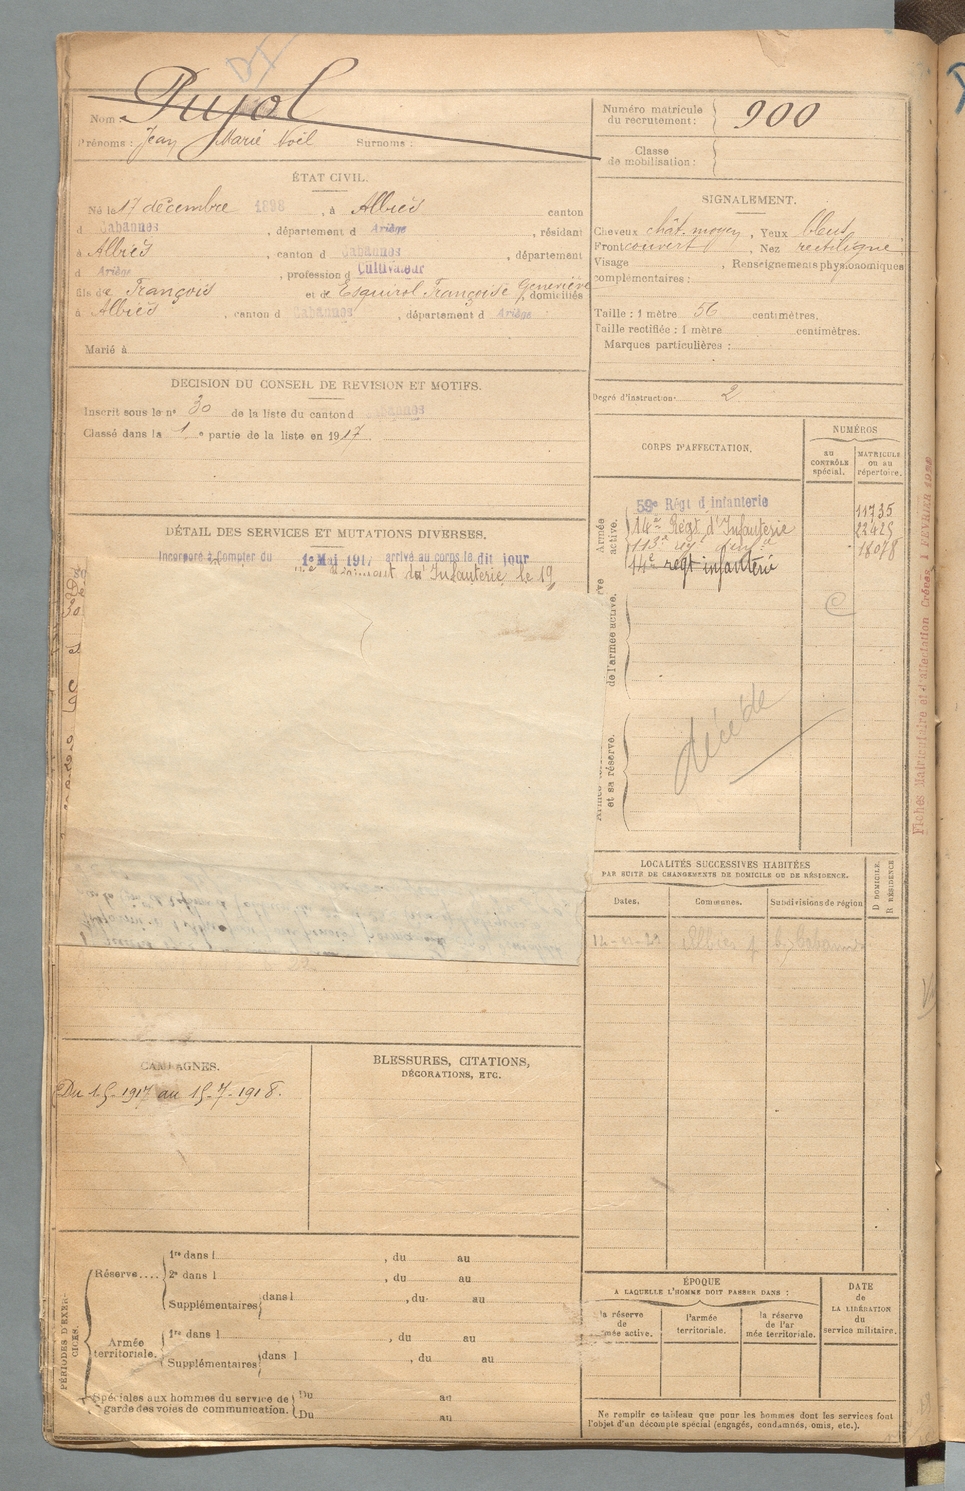 Pujol
Nom :
Prénoms : Jean Marie Noël Surnoms :
Numéro matricule du recrutement : 900
Classe de mobilisation :
ÉTAT CIVIL.
Né le 17 décembre 1898, à Albiès canton
d Cabannes, département d Ariège, résidant
à Albiès, canton d Cabannes, département
d Ariège, profession d Cultivateur
fils de François et de Esquirol Françoise Geneviève, domiciliés
à Albiès, canton d Cabannes, département d Ariège
Marié à
SIGNALEMENT.
Cheveux chât. moyen, Yeux bleus
Front couvert, Nez rectiligne
Visage, Renseignements physionomiques
complémentaires :
Taille : 1 mètre 56 centimètres.
Taille rectifiée : 1 mètre centimètres.
Marques particulières :
Degré d'instruction : 2
DECISION DU CONSEIL DE REVISION ET MOTIFS.
Inscrit sous le n° 30 de la liste du canton d Cabannes
Classé dans la 1 e partie de la liste en 1917
CORPS D'AFFECTATION.
NUMÉROS
au CONTRÔLE spécial.
MATRICULE ou au répertoire.
Armée active.
59e Régt d'Infanterie 11735
14e Régt d'Infanterie 22425
113e rég 18078
14e regt infanterie
de l'armée active.
et sa réserve.
décédé
DÉTAIL DES SERVICES ET MUTATIONS DIVERSES.
Incorporé à Compter du 1e Mai 1917 arrivé au corps le dit jour
Régiment d'Infanterie le 19
Fiches Matriculaire et d'affectation Créées
LOCALITÉS SUCCESSIVES HABITÉES
PAR SUITE DE CHANGEMENTS DE DOMICILE OU DE RÉSIDENCE.
D DOMICILE.
R RÉSIDENCE
Dates. Communes. Subdivisions de région
Albiès Cabannes
CAMPAGNES.
Du 1-5-1917 au 15-7-1918.
BLESSURES, CITATIONS,
DÉCORATIONS, ETC.
PÉRIODES D'EXERCICES.
Réserve....
1re dans l, du au
2e dans l, du au
Supplémentaires dans l, du au
Armée territoriale.
1re dans l, du au
Supplémentaires dans l, du au
Spéciales aux hommes du service de
garde des voies de communication.
Du au
Du au
ÉPOQUE
A LAQUELLE L'HOMME DOIT PASSER DANS :
la réserve de l'armée active.
l'armée territoriale.
la réserve de l'armée territoriale.
DATE de LA LIBÉRATION du service militaire.
Ne remplir ce tableau que pour les hommes dont les services font
l'objet d'un décompte spécial (engagés, condamnés, omis, etc.).